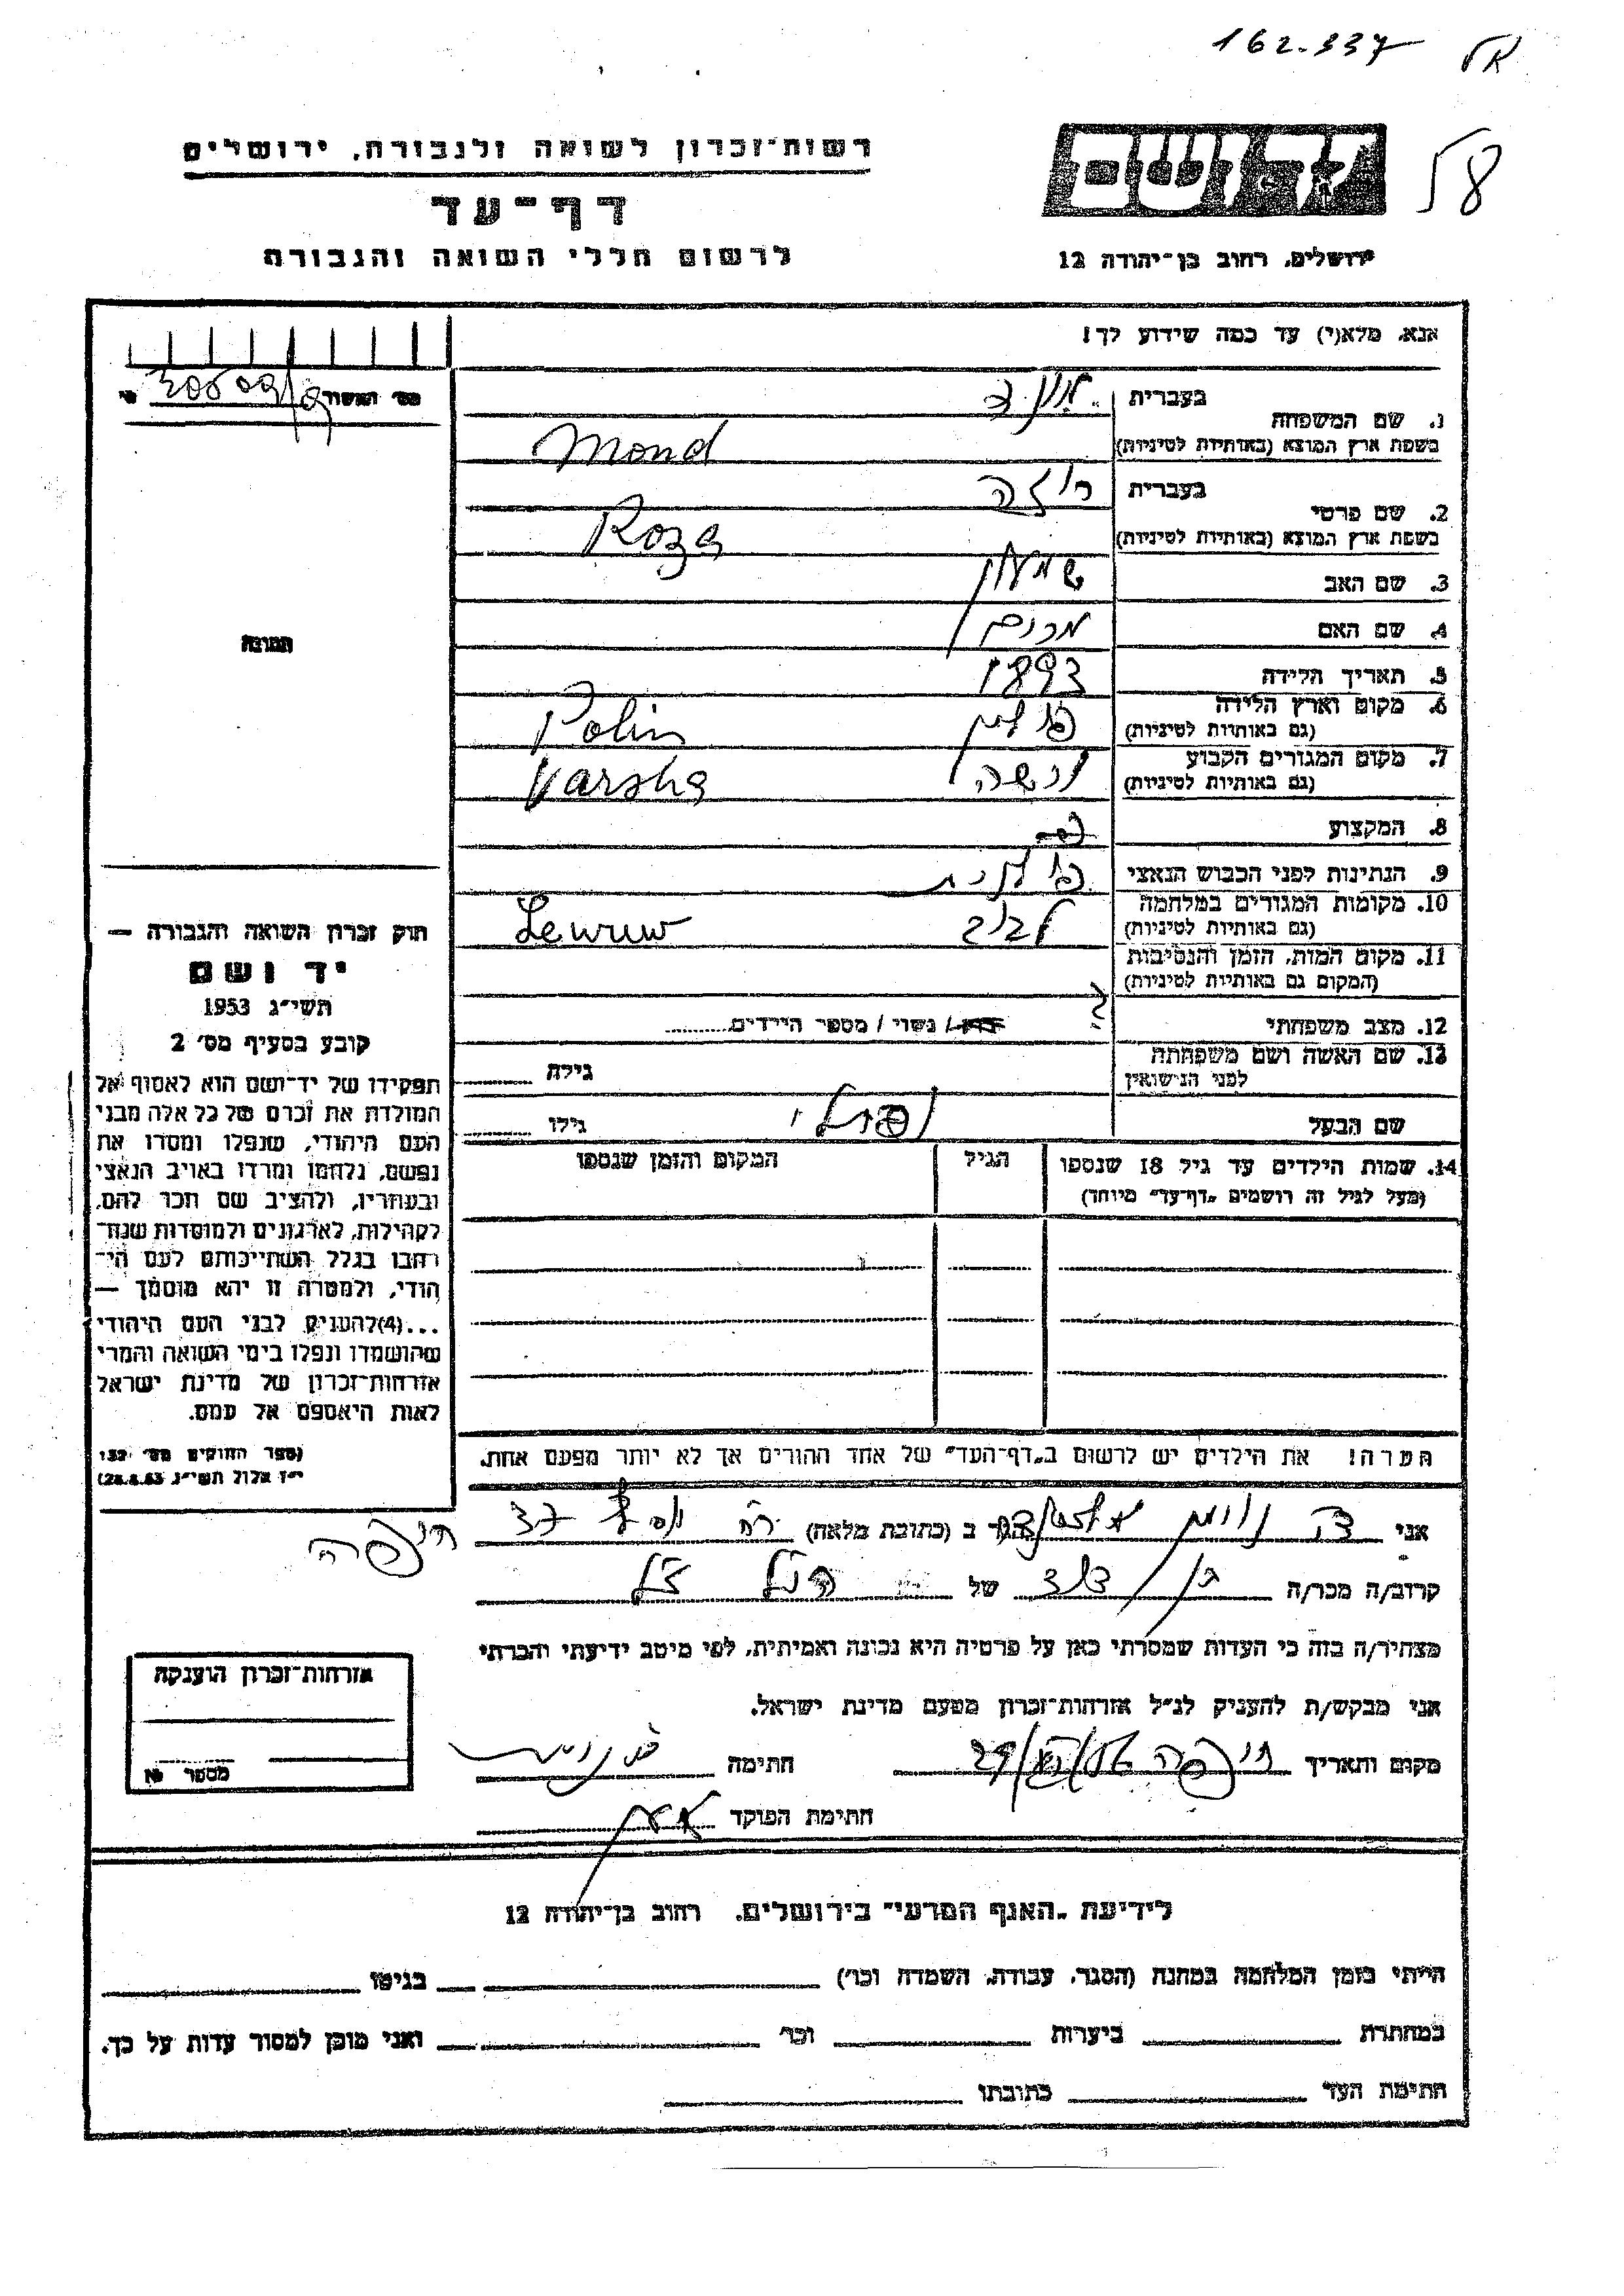 162.337
58
רשות-זכרון לשואה ולגבורה, ירושלים
דף-עד
לרשום חללי השואה והגבורה
ירושלים, רחוב בן-יהודה 12
אנא, מלא(י) עד כמה שידוע לך!
מס' האשור
1. שם המשפחה
בעברית
מונד
בשפת ארץ המוצא (באותיות לטיניות)
Mond
2. שם פרטי
בעברית
רוזה
בשפת ארץ המוצא (באותיות לטיניות)
Roza
3. שם האב
שמעון
4. שם האם
מרים
5. תאריך הלידה
1893
6. מקום וארץ הלידה
(גם באותיות לטיניות)
פולין Polin
7. מקום המגורים הקבוע
(גם באותיות לטיניות)
ורשה Varsha
8. המקצוע
9. הנתינות לפני הכבוש הנאצי
פולנית
10. מקומות המגורים במלחמה
(גם באותיות לטיניות)
לבוב
11. מקום המות, הזמן והנסיבות
(המקום גם באותיות לטיניות)
?
12. מצב משפחתי
רוק / נשוי / מספר הילדים
13. שם האשה ושם משפחתה
לפני הנישואין
גילה
שם הבעל
גילו
14. שמות הילדים עד גיל 18 שנספו
(מעל לגיל זה רושמים "דף-עד" מיוחד)
הגיל
המקום והזמן שנספו
הערה! את הילדים יש לרשום ב"דף-העד" של אחד ההורים אך לא יותר מפעם אחת.
תמונה
חוק זכרון השואה והגבורה —
יד ושם
תשי"ג 1953
קובע בסעיף מס' 2
תפקידו של יד-ושם הוא לאסוף אל
המולדת את זכרם של כל אלה מבני
העם היהודי, שנפלו ומסרו את
נפשם, נלחמו ומרדו באויב הנאצי
ובעוזריו, ולהציב שם וזכר להם,
לקהילות, לארגונים ולמוסדות שנח-
רבו בגלל השתייכותם לעם הי-
הודי, ולמטרה זו יהא מוסמך —
...(4)להעניק לבני העם היהודי
שהושמדו ונפלו בימי השואה והמרי
אזרחות-זכרון של מדינת ישראל
לאות היאספם אל עמם.
(ספר החוקים מס' 132
י"ז אלול תשי"ג 28.8.53)
אני
הגר ב (כתובת מלאה)
37 חיפה
קרוב/ה מכר/ה בן דוד של הנ"ל ז"ל
מצהיר/ה בזה כי העדות שמסרתי כאן על פרטיה היא נכונה ואמיתית, לפי מיטב ידיעתי והכרתי
אני מבקש/ת להעניק לנ"ל אזרחות-זכרון מטעם מדינת ישראל.
מקום ותאריך חיפה
חתימה
חתימת הפוקד
אזרחות-זכרון הוענקה
מספר
לידיעת "האגף המדעי" בירושלים, רחוב בן-יהודה 12
הייתי בזמן המלחמה במחנה (הסגר, עבודה, השמדה וכו')
בגיטו
במחתרת
ביערות
וכו'
ואני מוכן למסור עדות על כך.
חתימת העד
כתובתו